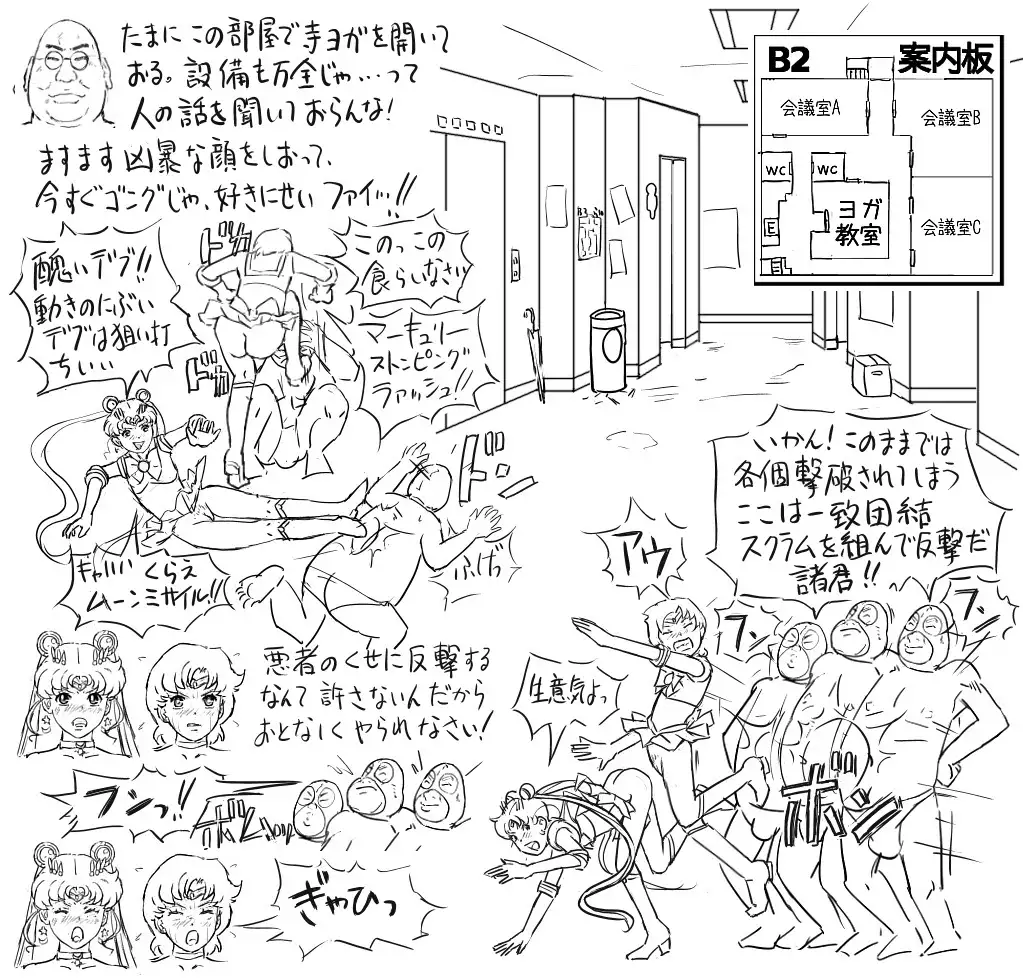 たまにこの部屋で寺ヨガを開いて
おる。設備も万全じゃ…って
人の話を聞いておらんな!
ますます凶暴な顔をしおって、
今すぐゴングじゃ、好きにせい ファイッ!!
B2 案内板
会議室A
会議室B
WC
WC
ヨガ
教室
会議室C
E
醜いデブ!!
動きのにぶい
デブは狙い打
ちぃぃ
ドカ
ドカッ
このっこの
食らいなさい
マーキュリー
ストンピング
ラァッシュ!!
ドッ
ふげっ
キャハハ くらえ
ムーンミサイル!!
いかん!このままでは
各個撃破されてしまう
ここは一致団結
スクラムを組んで反撃だ
諸君!!
アウ
フン
フン
生意気よっ
ボン
悪者のくせに反撃する
なんて許さないんだから
おとなしくやられなさい!
フンっ!!
ぎゃひっ